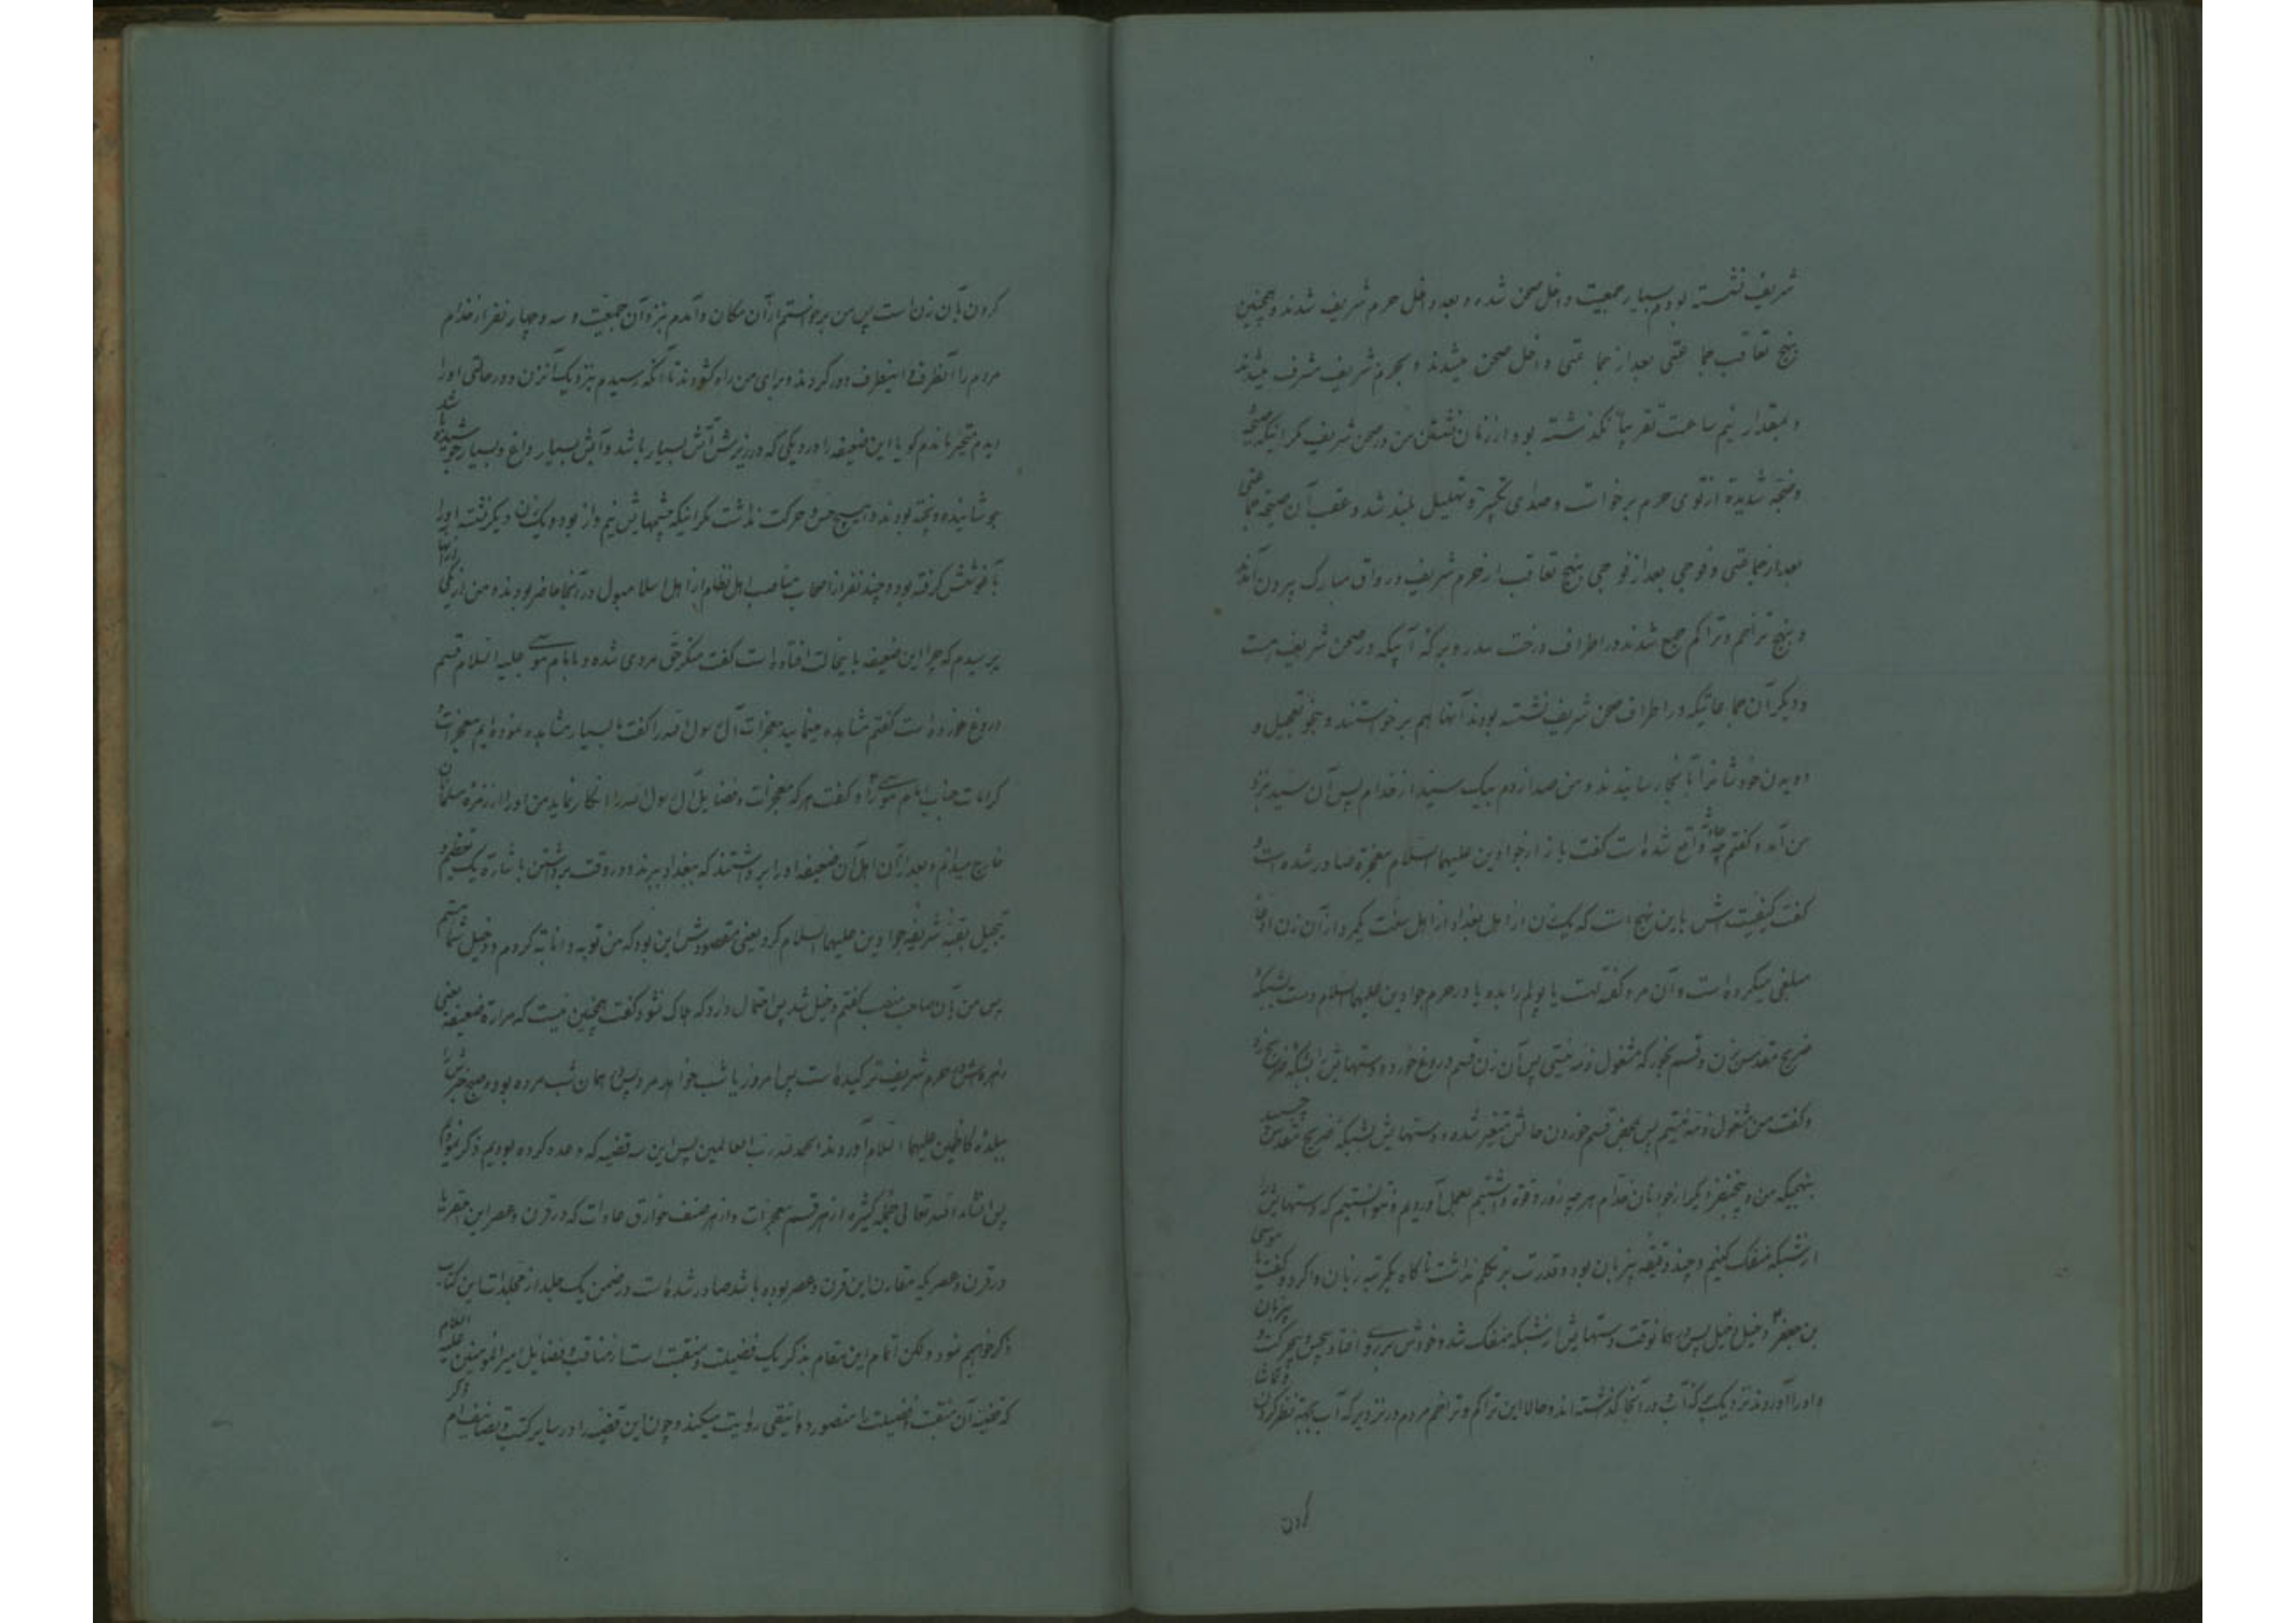 شریف نشسته بودم بسیار جمعیت داخل صحن شده و بعد داخل حرم شریف شدند و همچنین
بنهج تعاقب جماعتی بعد از جماعتی داخل صحن میشدند و بحرم شریف مشرف میشدند
و بمقدار نیم ساعت تقریباً نگذشته بود از زمان نشستن من در صحن شریف مگر اینکه صیحه
و ضجه شدیده از توی حرم برخواست و صدای تکبیر و تهلیل بلند شد و عقب آن صیحه جماعتی
بعد از جماعتی و فوجی بعد از فوجی بنهج تعاقب از حرم شریف و رواق مبارک بیرون آمدند
و بنهج تزاحم و تراکم جمع شدند در اطراف درخت سدر و برکه آبیکه در صحن شریف است
و دیگر آن جماعاتیکه در اطراف صحن شریف نشسته بودند آنها هم برخواستند و بنحو تعجیل و
دویدن خودشانرا بآنجا رسانیدند و من صدا زدم بیک سیدی از خدام پس آن سید نزد
من آمد و گفتم چه حادثه واقع شده است گفت باز از جوادین علیهما السلام معجزه صادر شده است و
گفت کیفیتش باین نهج است که یکزن از اهل بغداد از اهل سنت یکمرد از آن زن ادعا
مبلغی میکرده است و آن مرد گفته است یا پولم را بده یا در حرم جوادین علیهما السلام دست بشبکه
ضریح مقدس بزن و قسم بخور که مشغول ذمه نیستی پس آن زن قسم دروغ خورد و دستهایش را بشبکه ضریح زد
و گفت من مشغول ذمه نیستم پس بمحض قسم خوردن حالش متغیر شده و دستهایش بشبکه ضریح مقدس چسبید
بنهجیکه من و پنجنفر دیگر از جوانان خدام هر چه زور و قوه داشتیم بعمل آوردیم و نتوانستیم که دستهایش را
از شبکه منفک کنیم و چند دقیقه بیزبان بود و قدرت بر تکلم نداشت ناگاه یکمرتبه زبان وا کرد و گفت یا موسی
بن جعفر دخیل دخیل پس در همانوقت دستهایش از شبکه منفک شد و خودش بر رو افتاد بیحس و بیحرکت و بیزبان
و او را آوردند نزدیک برکه آب در آنجا گذاشته‌اند و حالا این تراکم و تزاحم مردم در نزد برکه آب بجهة نظر کردن و تماشا
کردن
کردن بآن زن است پس من برخواستم از آن مکان و آمدم نزد آن جمعیت و سه و چهار نفر از خدام
مردم را آنطرف و اینطرف دور کردند و برای من راه گشودند تا آنکه رسیدم بنزدیک آنزن و در حالتی او را
دیدم متحیر ماندم گویا این ضعیفه را در دیگی که در زیرش آتش بسیار باشد و آبش بسیار داغ و بسیار جوشیده باشد
جوشانیده و پخته بودند و هیچ حس و حرکت نداشت مگر اینکه چشمهایش نیم واز بود و یکزن دیگر نشسته او را
بآغوشش گرفته بود و چند نفر از اصحاب مناصب اهل نظام از اهل اسلامبول در آنجا حاضر بودند و من از یکی از آنها
پرسیدم که چرا این ضعیفه باینحالت افتاده است گفت منکر حق مردی شده و بامام موسی علیه السلام قسم
دروغ خورده است گفتم مشاهده مینمایید معجزات آل رسول الله را گفت بسیار مشاهده نموده‌ایم معجزات و
کرامات جناب امام موسی را و گفت هر که معجزات و فضایل آل رسول الله را انکار نماید من او را از زمره مسلمانان
خارج میدانم و بعد از آن اهل آن ضعیفه او را برداشتند که ببغداد ببرند و در وقت برداشتن باشاره یک تعظیم و
تبجیل بقبه شریفه جوادین علیهما السلام کرد یعنی مقصودش این بود که من توبه و انابه کردم و دخیل شما هستم
پس من بآن صاحب منصب گفتم دخیل شد پس احتمال دارد که هلاک نشود گفت همچنین نیست که مراره ضعیفه یعنی
زهره‌اش در حرم شریف ترکیده است پس امروز یا شب خواهد مرد پس در همان شب مرده بود و صبح خبرش را
ببلده کاظمین علیهما السلام آوردند الحمد لله رب العالمین پس این سه قضیه که وعده کرده بودیم ذکر نمودیم
پس انشاء الله تعالی جمله کثیره از هر قسم معجزات و از هر صنف خوارق عادات که در قرن و عصر این احقر یا
در قرن و عصریکه مقارن این قرن و عصر بوده باشد صادر شده است در ضمن یک جلد از مجلدات این کتاب
ذکر خواهیم نمود و لکن اتمام این مقام بذکر یک فضیلت و منقبت است از مناقب و فضایل امیر المؤمنین علیه السلام
که قضیه آن منقبت و فضیلت را منصور دوانیقی روایت میکند و چون این قضیه را در سایر کتب و تصانیفم ذکر